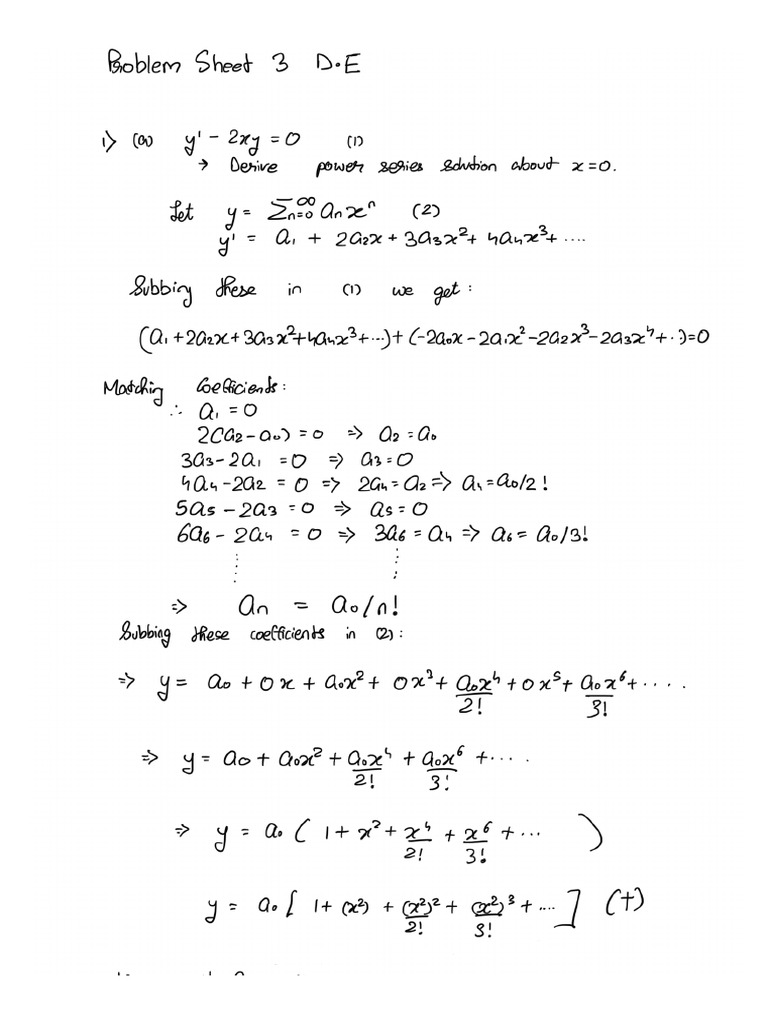 Problem Sheet 3 D.E
1) (a) y' - 2xy = 0 (1)
→ Derive power series solution about x=0.
Let y = ∑_{n=0}^{∞} a_n x^n (2)
y' = a₁ + 2a₂x + 3a₃x² + 4a₄x³ + ....
Subbing these in (1) we get:
(a₁+2a₂x+3a₃x²+4a₄x³+...)+(-2a₀x-2a₁x²-2a₂x³-2a₃x⁴+..)=0
Matching Coefficients:
∴ a₁ = 0
2(a₂-a₀) = 0 ⇒ a₂ = a₀
3a₃-2a₁ = 0 ⇒ a₃ = 0
4a₄-2a₂ = 0 ⇒ 2a₄ = a₂ ⇒ a₄ = a₀/2!
5a₅ - 2a₃ = 0 ⇒ a₅ = 0
6a₆ - 2a₄ = 0 ⇒ 3a₆ = a₄ ⇒ a₆ = a₀/3!
⋮ ⋮
⇒ a_n = a₀/n!
Subbing these coefficients in (2):
⇒ y = a₀ + 0x + a₀x² + 0x³ + a₀x⁴/2! + 0x⁵ + a₀x⁶/3! + ....
⇒ y = a₀ + a₀x² + a₀x⁴/2! + a₀x⁶/3! + ....
⇒ y = a₀ ( 1 + x² + x⁴/2! + x⁶/3! + ... )
y = a₀ [ 1 + (x²) + (x²)²/2! + (x²)³/3! + .... ] (†)